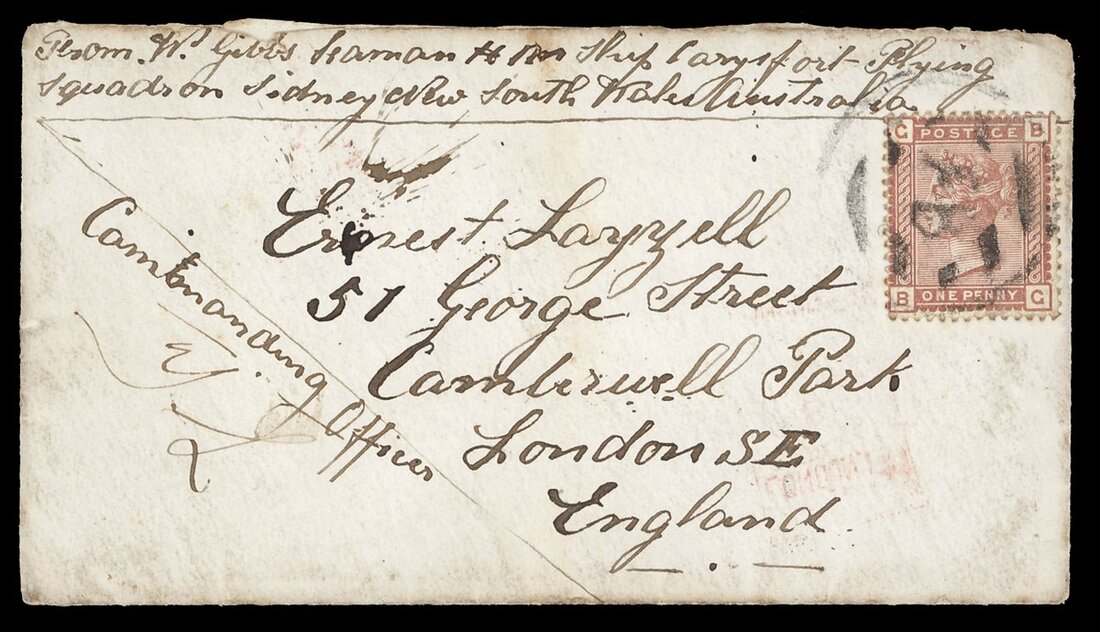 From Wm Gibbs Seaman H M Ship Carysfort Flying
Squadron Sidney New South Wales Australia
G POSTAGE B
B ONE PENNY G
Ernest Lazzell
51 George Street
Camberwell Park
London SE
England
Commanding Officer